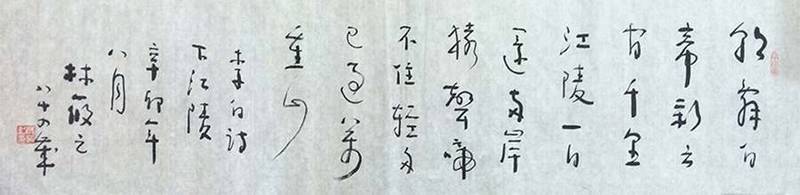 朝辭白
帝彩云
間千里
江陵一日
還兩岸
猿聲啼
不住輕舟
已過萬
重山
李白詩
下江陵
辛卯年
八月
林筱之
八十四歲